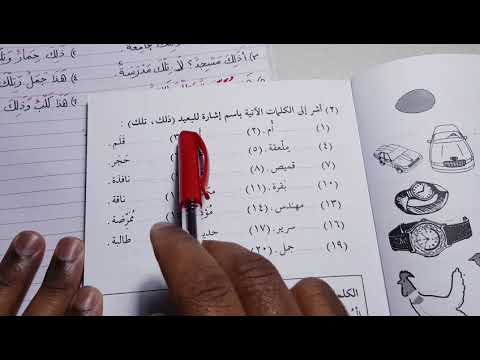 جامعة.
أذلك مسجد؟ لا، تلك مدرسة.
ذلك حمار
هذا جمل
هذا كلب وذلك
(٢) أشر إلى الكلمات الآتية باسم إشارة للبعيد (ذلك، تلك) :
(١) أم . (٢) قلم .
(٤) ملعقة . (٥) حجر .
(٧) قميص . (٨) نافذة .
(١٠) بقرة . (١١) ناقة .
(١٣) مهندس . (١٤) ممرضة .
(١٦) سرير . (١٧) طالبة .
(١٩) جمل . (٢٠)